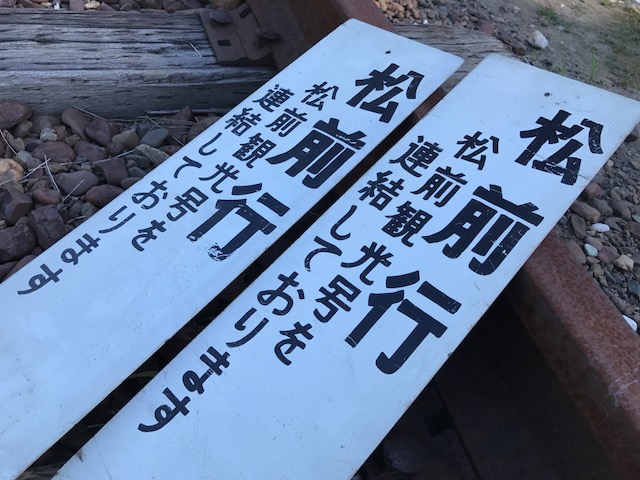 松前行
松前観光号を
連結しております
松前行
松前観光号を
連結しております